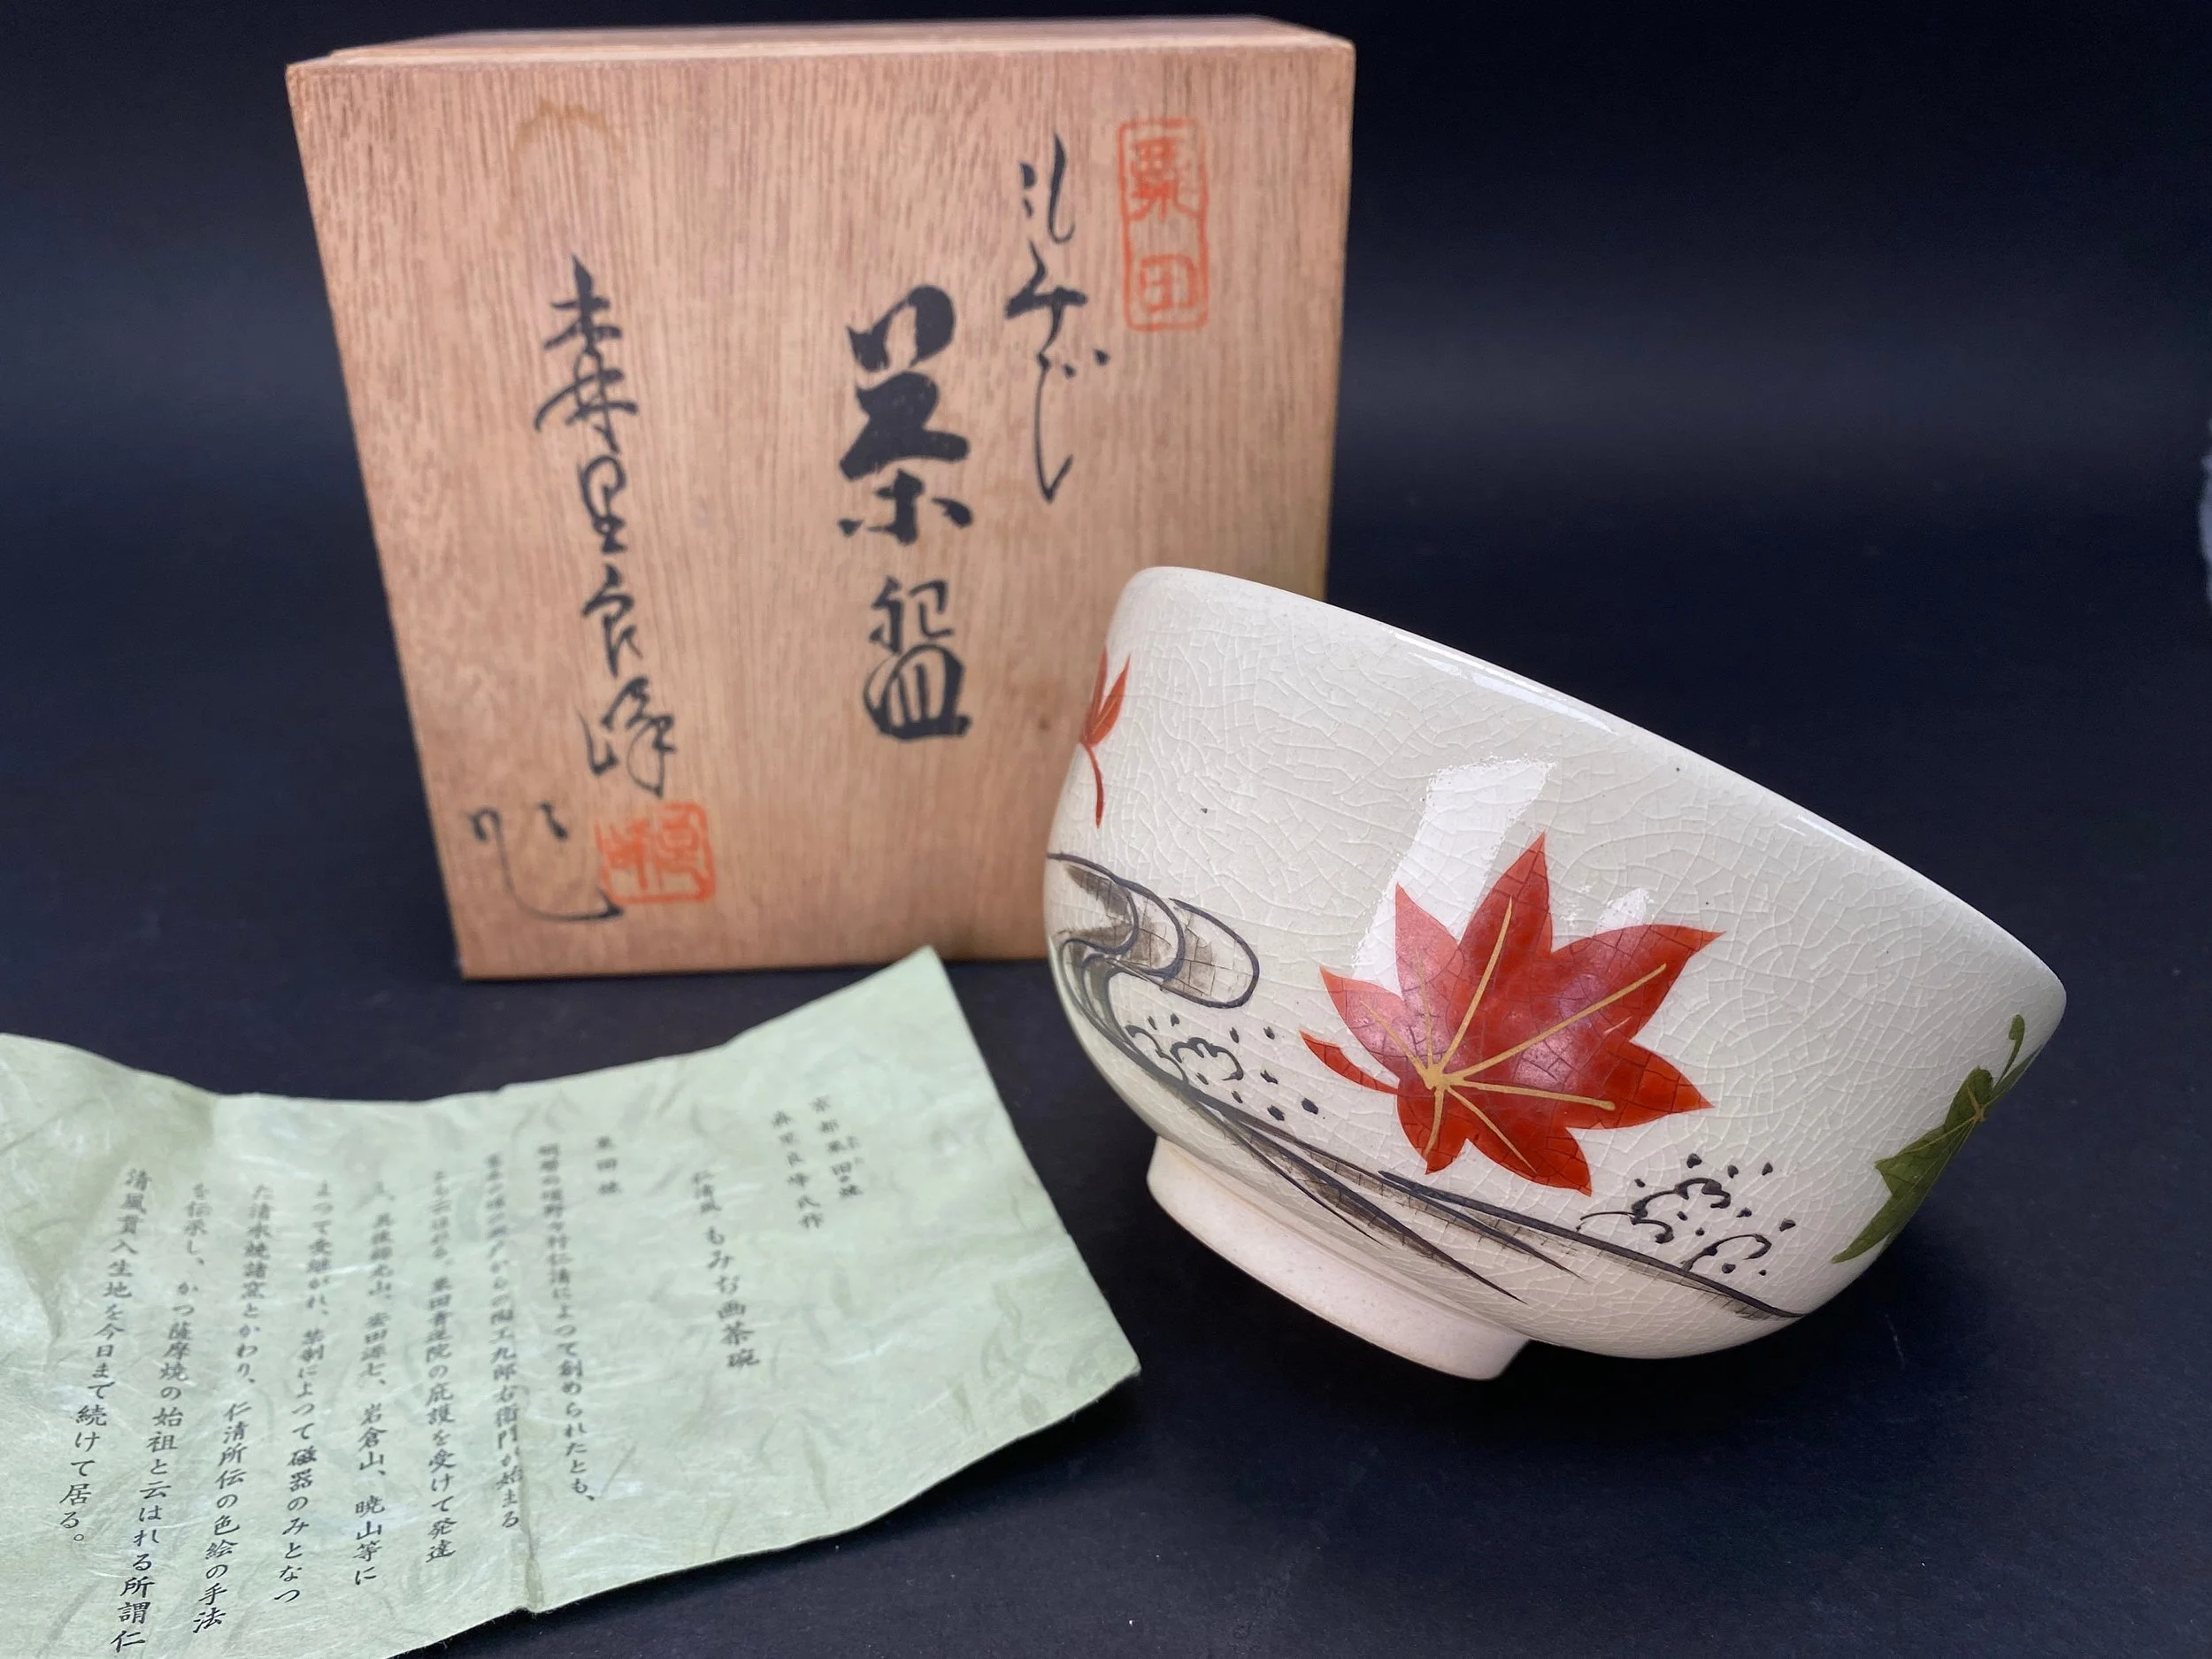 粟田
もみぢ
茶盌
森里良峰
作
京都粟田焼
森里良峰氏作
仁清風 もみぢ画茶碗
粟田焼
明暦の頃野々村仁清によつて創められたとも、
の陶工九郎右衛門が始まる
とも云はれる。粟田青蓮院の庇護を受けて発達
し、其後錦光山、安田源七、岩倉山、暁山等に
よつて受継がれ、茶制によつて磁器のみとなつ
た清水焼諸窯とかわり、仁清所伝の色絵の手法
を伝承し、かつ薩摩焼の始祖と云はれる所謂仁
清風貫入生地を今日まで続けて居る。